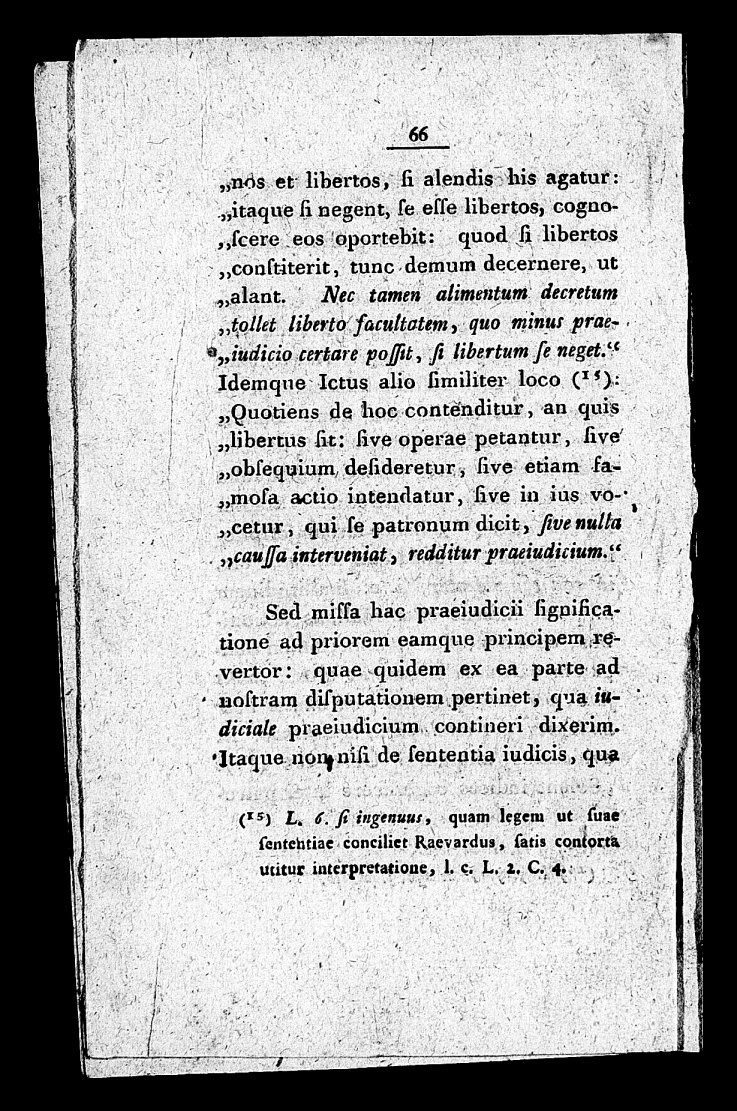 66
„nos et libertos, ſi alendis his agatur:
„itaque ſi negent, ſe eſſe libertos, cogno-
„ſcere eos oportebit: quod ſi libertos
„conſtiterit, tunc demum decernere, ut
„alant. Nec tamen alimentum decretum
„tollet liberto facultatem, quo minus prae-
„iudicio certare poſſit, ſi libertum ſe neget.“
Idemque Ictus alio ſimiliter loco (15):
„Quotiens de hoc contenditur, an quis
„libertus ſit: ſive operae petantur, ſive
„obſequium deſideretur, ſive etiam fa-
„moſa actio intendatur, ſive in ius vo-
„cetur, qui ſe patronum dicit, ſive nulla
„cauſſa interveniat, redditur praeiudicium.“
Sed miſſa hac praeiudicii ſignifica-
tione ad priorem eamque principem re-
vertor: quae quidem ex ea parte ad
noſtram diſputationem pertinet, qua iu-
diciale praeiudicium contineri dixerim.
Itaque non niſi de ſententia iudicis, qua
(15) L. 6. ſi ingenuus, quam legem ut ſuae
ſententiae conciliet Raevardus, ſatis contorta
utitur interpretatione, l. c. L. 2. C. 4.